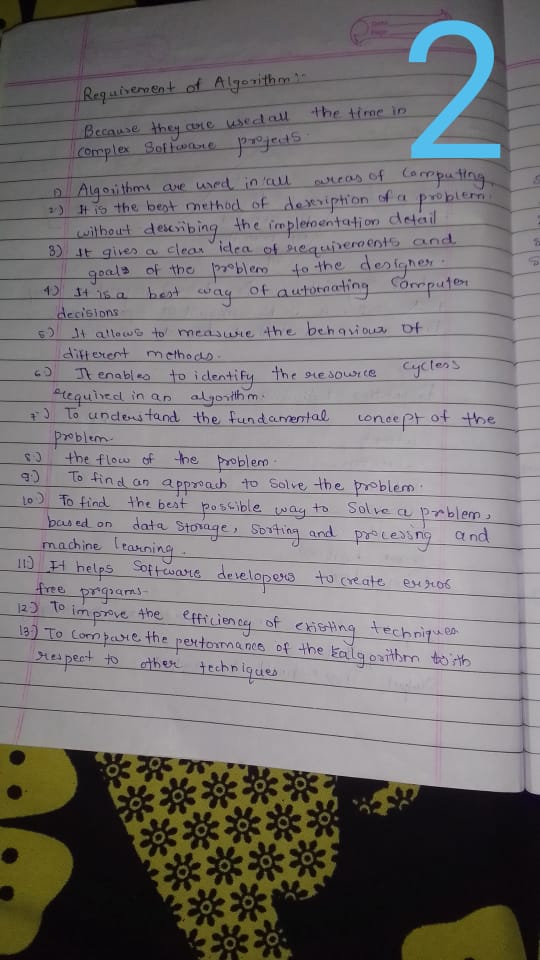 2
Requirement of Algorithm:-
Because they are used all the time in
complex Software projects.
1) Algorithms are used in all areas of Computing.
2) It is the best method of description of a problem
without describing the implementation detail
3) It gives a clear idea of requirements and
goals of the problem to the designer.
4) It is a best way of automating Computer
decisions
5) It allows to measure the behaviour of
different methods.
6) It enables to identify the resource cycless
required in an algorithm.
7) To understand the fundamental concept of the
problem.
8) the flow of the problem.
9) To find an approach to solve the problem.
10) To find the best possible way to Solve a problem,
based on data storage, sorting and processing and
machine learning.
11) It helps Software developers to create error
free programs-
12) To improve the efficiency of existing techniques
13) To compare the performance of the algorithm with
respect to other techniques.